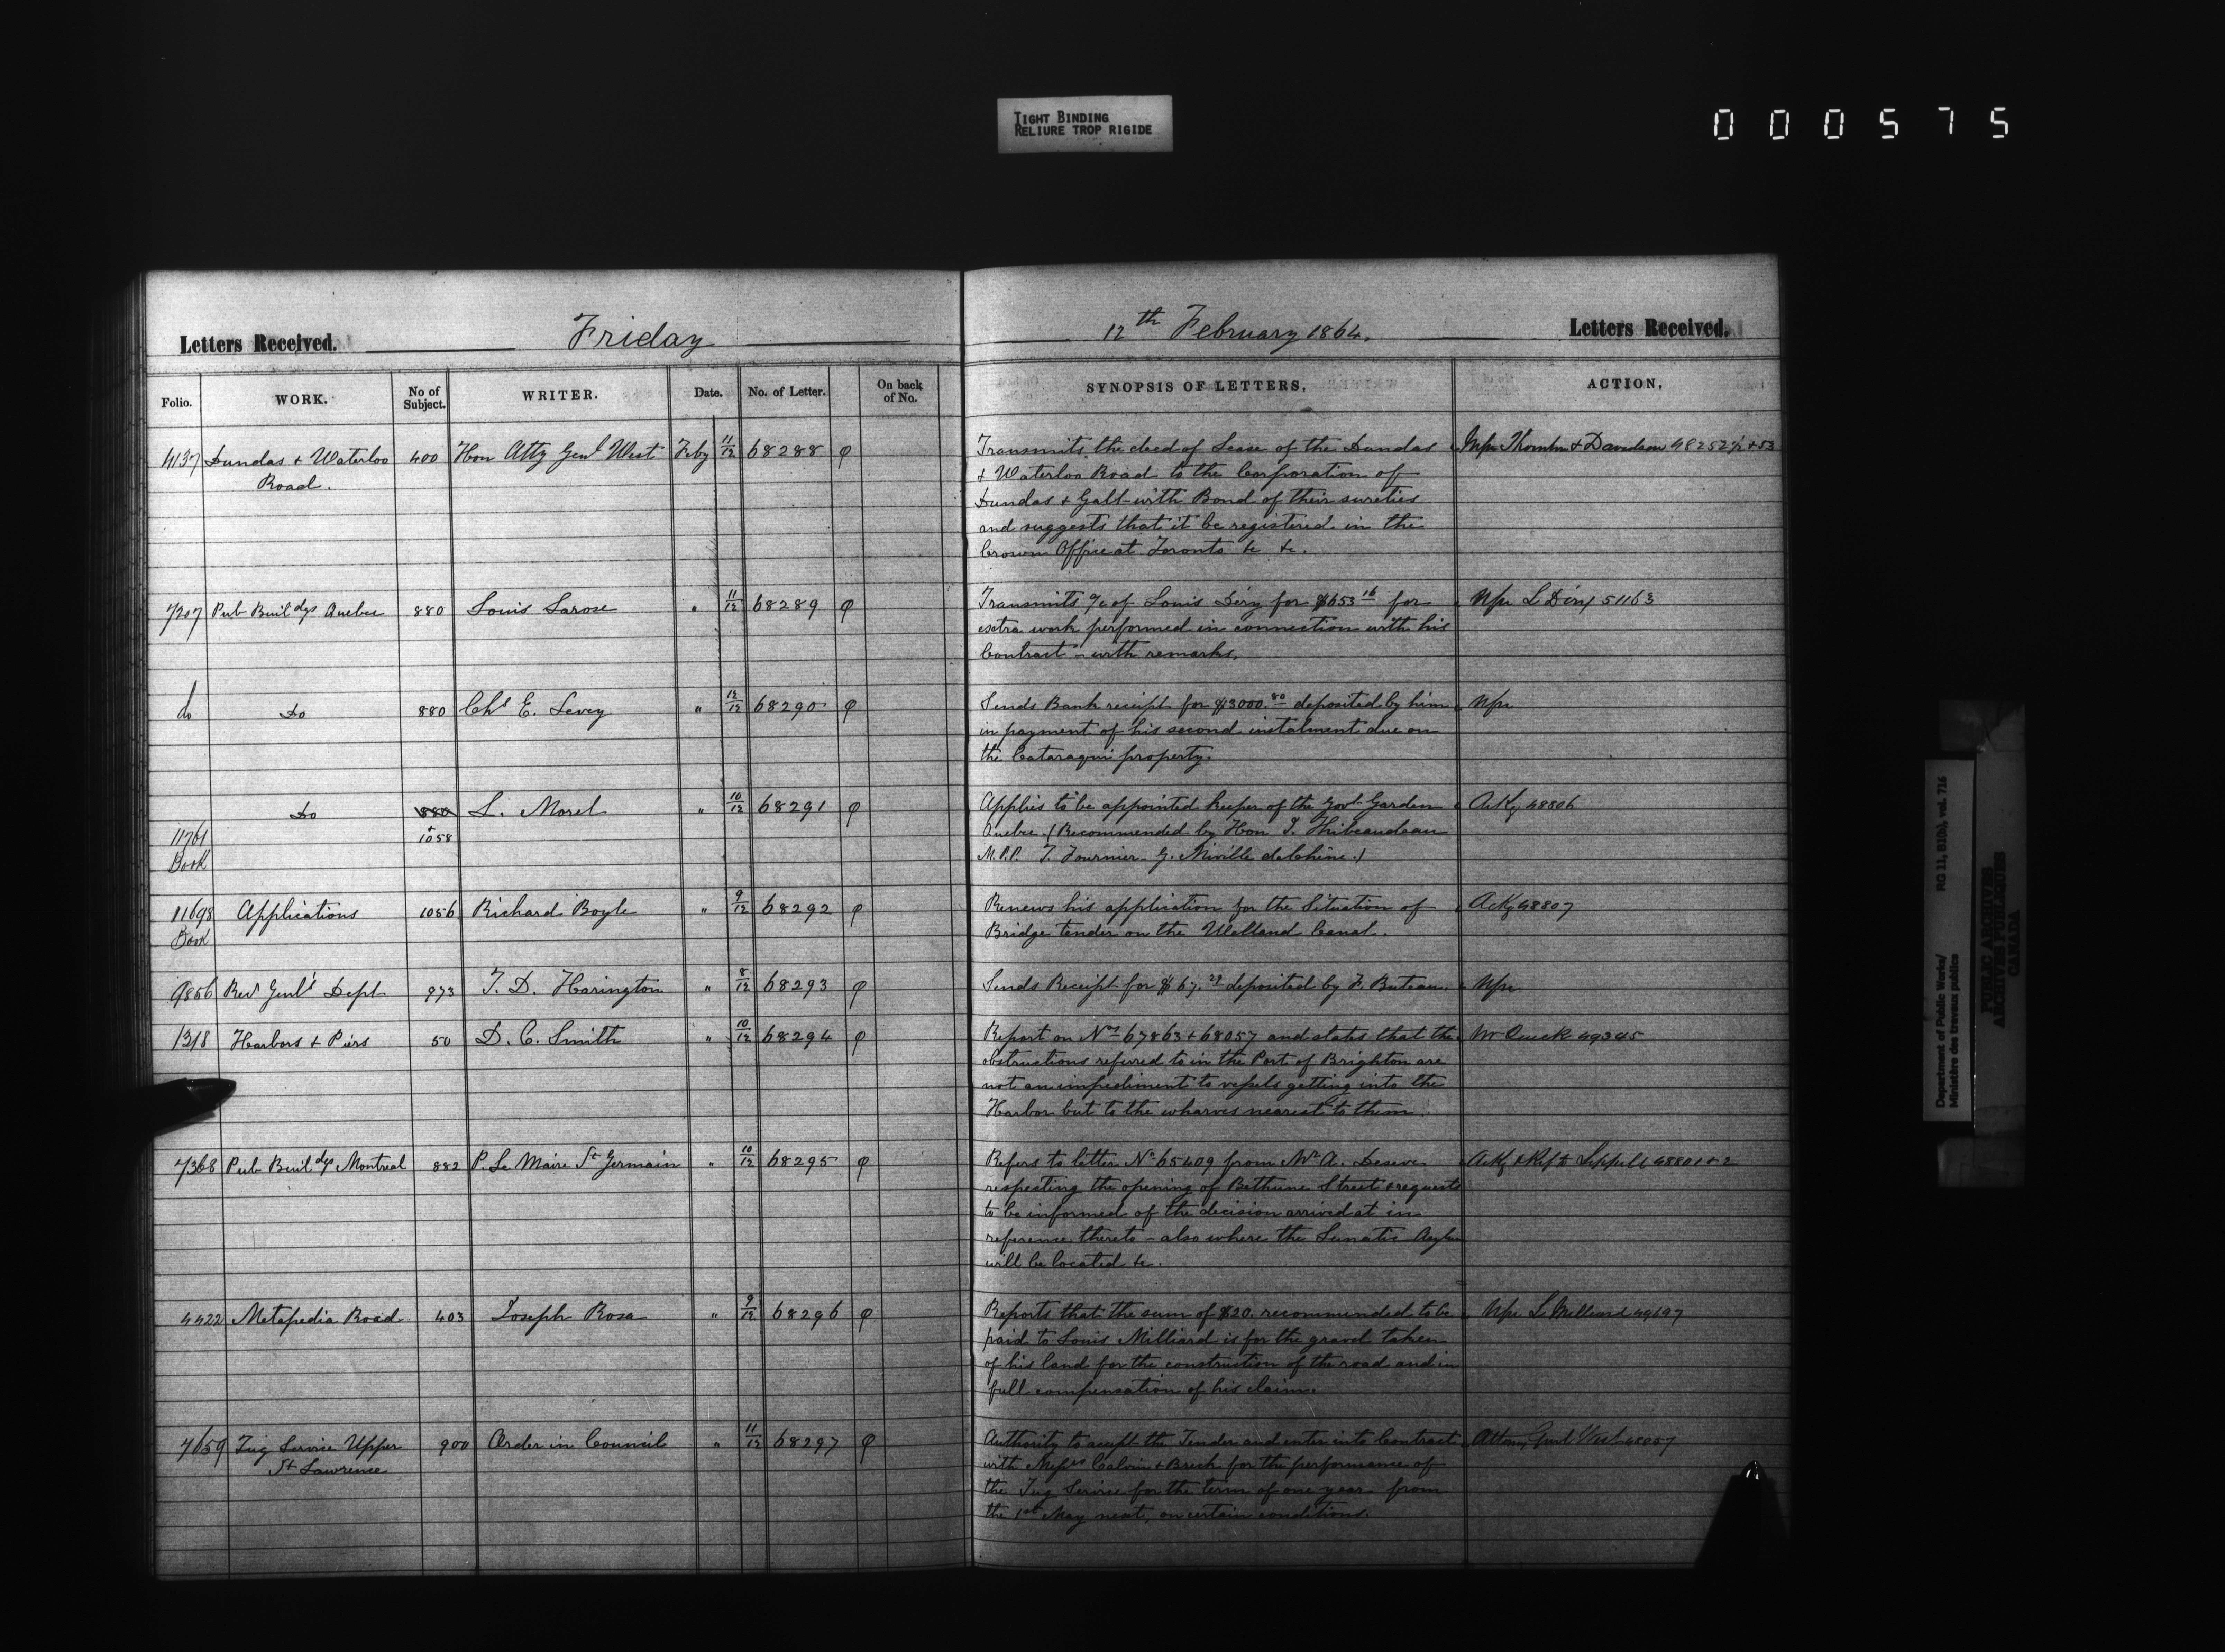 TIGHT BINDING
RELIURE TROP RIGIDE
000575
Letters Received. Friday
12th February 1864. Letters Received.
Folio. WORK. No of Subject. WRITER. Date. No. of Letter. On back of No.
SYNOPSIS OF LETTERS. ACTION.
4137 Dundas & Waterloo 400 Hon Atty Genl West Feby 11/12 68288 φ
Road.
Transmits the deed of Lease of the Dundas
& Waterloo Road to the Corporation of
Dundas & Galt with Bond of their sureties
and suggests that it be registered in the
Crown Office at Toronto &c &c.
Thornton & Davidson 48252 1/2 + 53
7207 Pub Buildgs Quebec 880 Louis Larose " 11/12 68289 φ
Transmits a/c of Louis Dery for $653 16 for
extra work performed in connection with his
Contract – with remarks.
L Dery 51163
do Do 880 Chs E. Levey " 12/12 68290 φ
Sends Bank receipt for $3000.80 deposited by him
in payment of his second instalment due on
the Cataraqui property.
Do 880 L. Morel " 10/12 68291 φ
11761 + 1058
Book
Applies to be appointed keeper of the Govt Garden
Quebec (Recommended by Hon I. Thibeaudeau
M.P.P. T. Fournier G. Miville deChêne.)
Ackg 48806
11698 Applications 1056 Richard Boyle " 9/12 68292 φ
Book
Renews his application for the Situation of
Bridge tender on the Welland Canal.
Ackg 48807
9856 Recr Genl's Dept 973 T. D. Harington " 8/12 68293 φ
Sends Receipt for $67.29 deposited by F. Buteau.
1318 Harbors & Piers 50 D. C. Smith " 10/12 68294 φ
Report on Nos 67863 + 68057 and states that the
obstructions refered to in the Port of Brighton are
not an impediment to vessels getting into the
Harbor but to the wharves nearest to them.
49345
7368 Pub Buildgs Montreal 882 P. Le Maire St Germain " 10/12 68295 φ
Refers to letter No 65409 from Mr A.
respecting the opening of Bethune Street & requests
to be informed of the decision arrived at in
reference thereto – also where the Lunatic Asylum
will be located &c.
Ackg & Ref to 48801 + 2
4422 Metapedia Road 403 Joseph Rosa " 9/12 68296 φ
Reports that the sum of $20. recommended to be
paid to Louis Milliard is for the gravel taken
of his land for the construction of the road and in
full compensation of his claim.
L Milliard 49697
7659 Tug Service Upper 900 Order in Council " 11/12 68297 φ
St Lawrence
Authority to accept the Tender and enter into Contract
with Messrs Calvin & Breck for the performance of
the Tug Service for the term of one year from
the 1st May next, on certain conditions.
Attorny Genl West 48057
Department of Public Works/ RG 11, B1(b), vol. 716
Ministère des travaux publics
PUBLIC ARCHIVES
ARCHIVES PUBLIQUES
CANADA